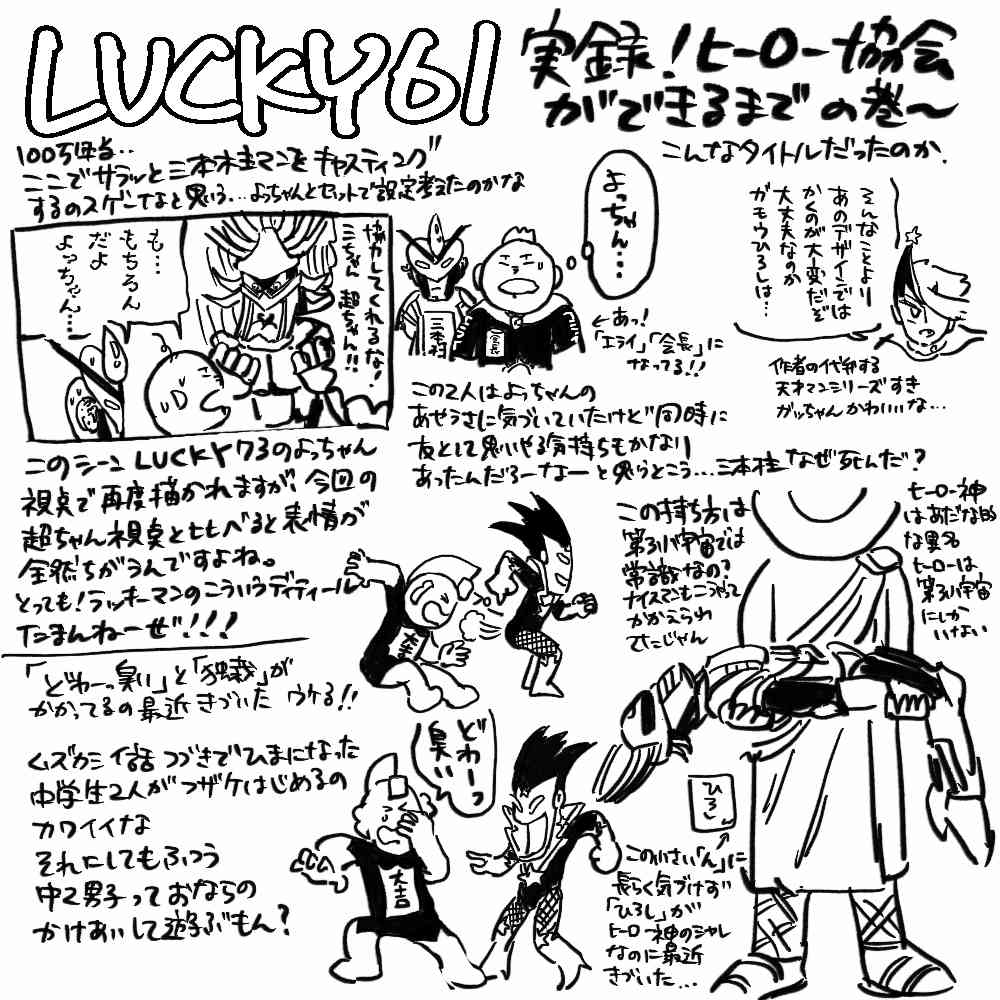 LUCKY61
実録!ヒーロー協会
ができるまでの巻〜
こんなタイトルだったのか、
100万年前‥
ここでサラッと三本木主マンをキャスティング
するのスゲーなと思いう…よっちゃんとセットで設定考えたのかな
協力してくれるな!
三ちゃん 超ちゃん!!
も…
もちろん
だよ
よっちゃん…
よっちゃん…
三本柱
会長
←あっ!
「エライ」「会長」に
なってる!!
そんなことより
あのデザインでは
かくのが大変だぞ
大丈夫なのか
ガモウひろしは…
作者の代弁する
天才マンシリーズすき
ガッちゃんかわいいな…
この2人はよっちゃんの
あやうさに気づいていたけど同時に
友として思いやる気持ちもかなり
あったんだろーなーと思うとこう…三本柱なぜ死んだ?
このシーンLUCKY73のよっちゃん
視点で再度描かれますが、今回の
超ちゃん視点とともべると表情が
全然ちがうんですよね。
とっても!ラッキーマンのこういうディティール
たまんねーぜ!!!
「どわーっ臭い」と「独裁」が
かかってるの最近きづいた ウケる!!
ムズカシイ話つづきでひまになった
中学生2人がフザケはじめるの
カワイイな
それにしてもふつう
中2男子っておならの
かけあいして遊ぶもん?
大吉
どわーっ
臭い
大吉
この持ち方は
第31八宇宙では
常識なの?
ナイスマンもこうやって
かかえられ
てたじゃん
ヒーロー神
はあだな的
な異名
ヒーローは
第31八宇宙
にしか
いけない
ひろし
この小さい「ん」に
長らく気づけず
「ひろし」が
ヒーロー神のシャレ
なのに最近
きづいた…